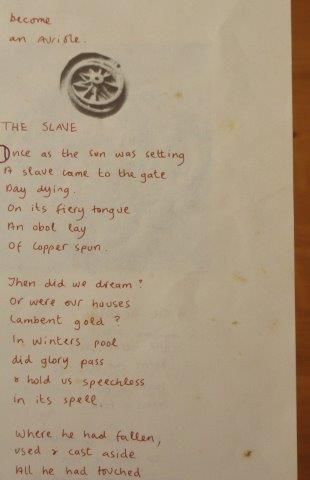 become
an aurifle.
THE SLAVE
Once as the sun was setting
A slave came to the gate
Day dying.
On its fiery tongue
An obol lay
Of copper spun.
Then did we dream?
Or were our houses
Lambent gold?
In winters pool
did glory pass
& hold us speechless
in its spell.
Where he had fallen,
used & cast aside
All he had touched